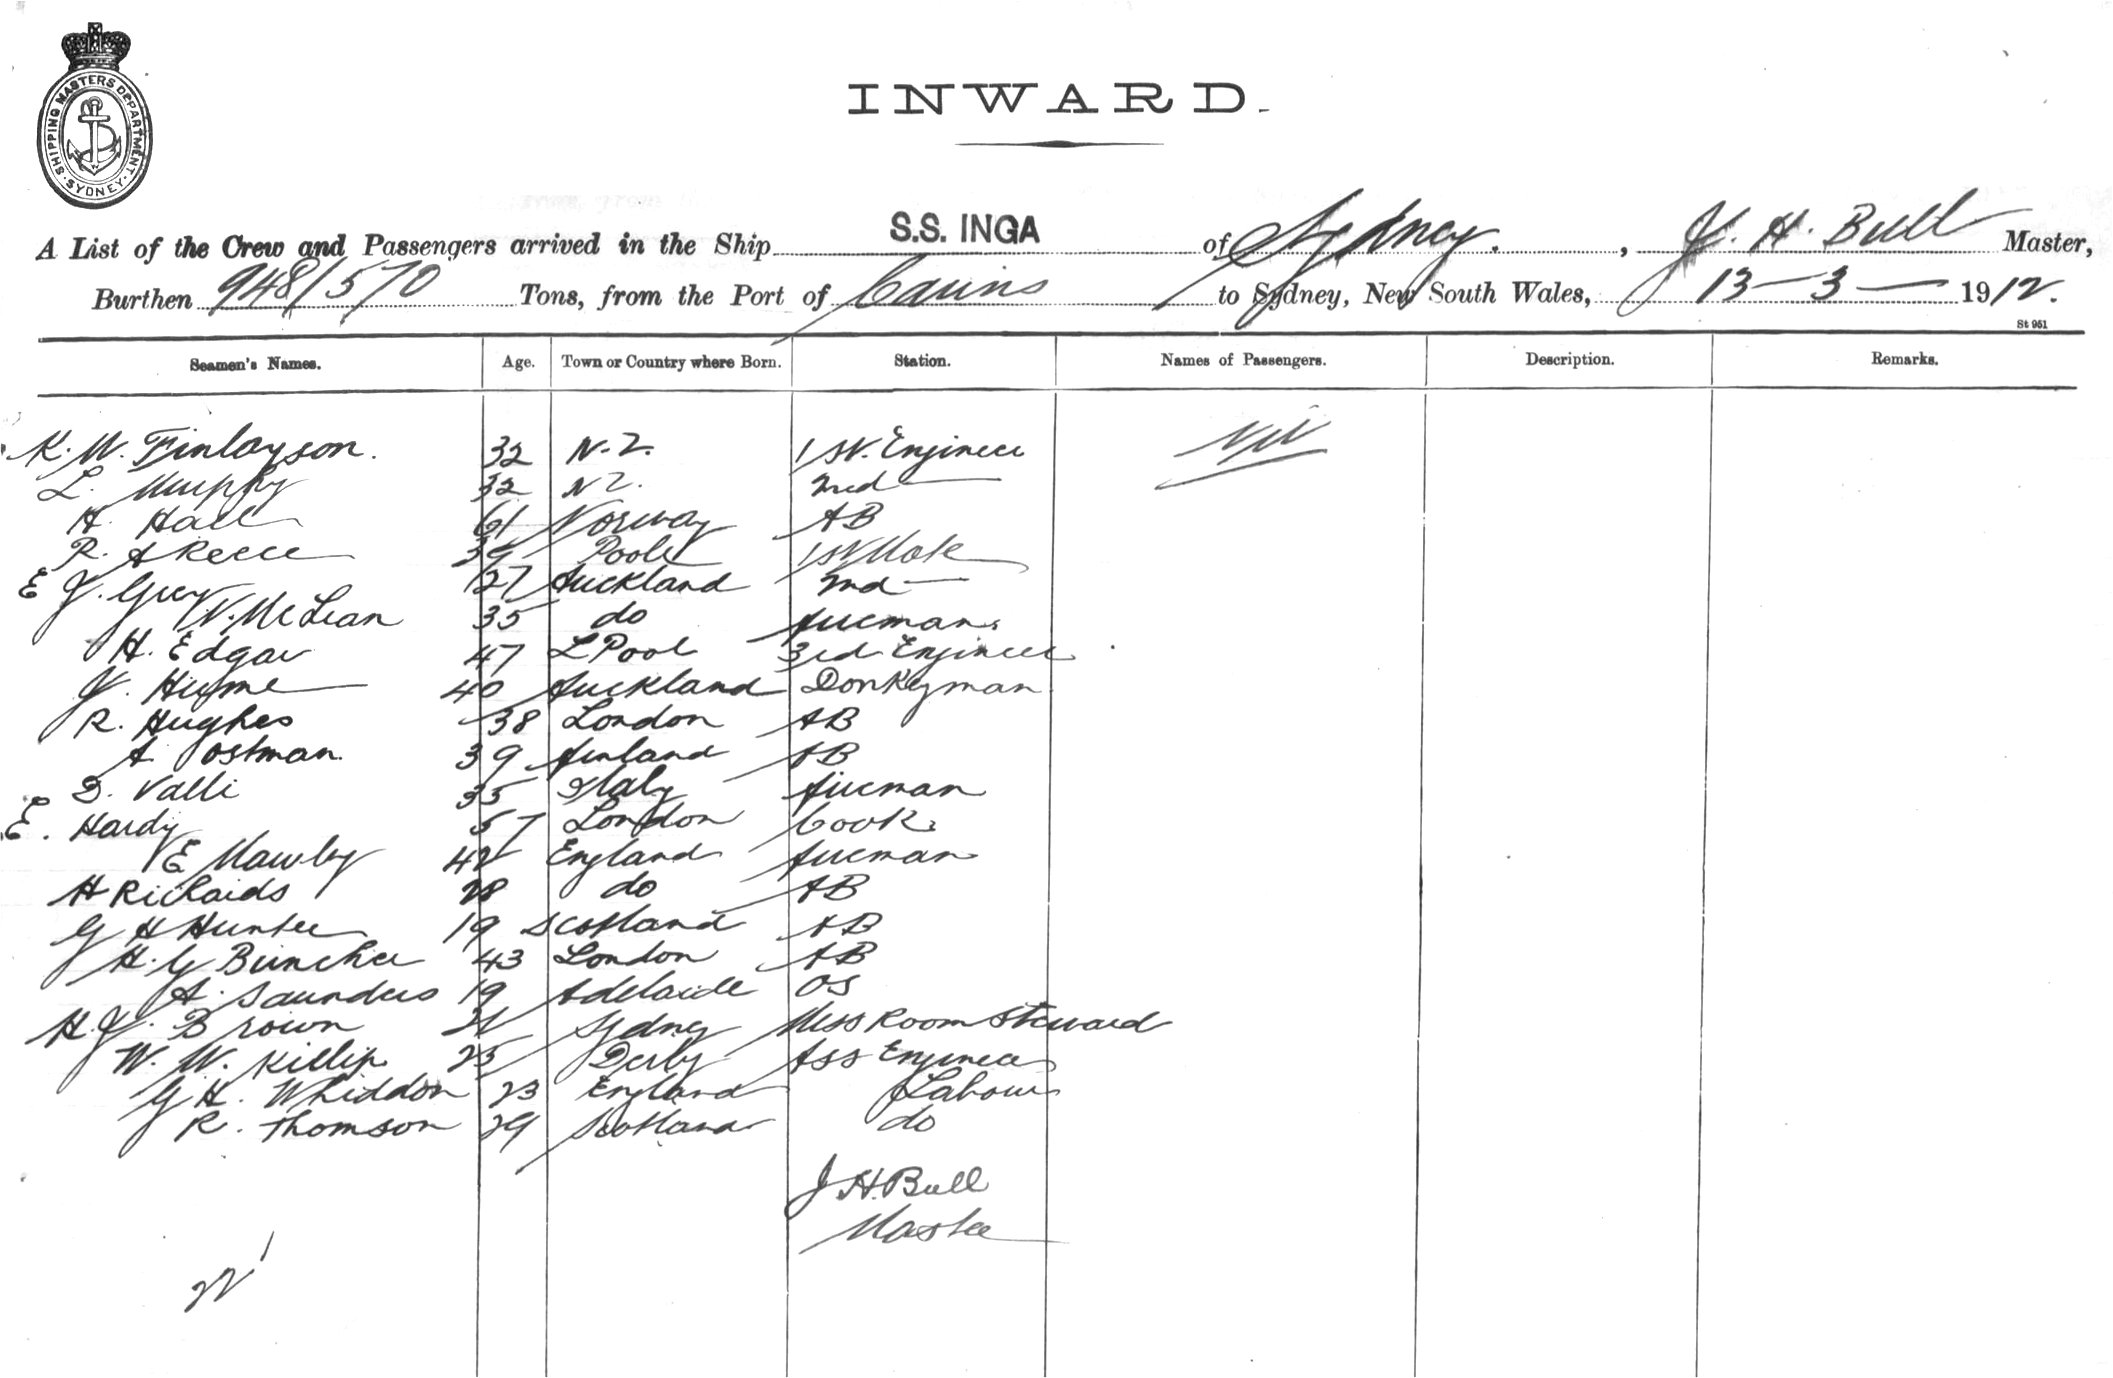 SHIPPING MASTERS DEPARTMENT
SYDNEY
INWARD.
A List of the Crew and Passengers arrived in the Ship S.S. INGA of Sydney, J. H. Bull Master,
Burthen 948/570 Tons, from the Port of Cairns to Sydney, New South Wales, 13-3-1912.
St 951
Seamen's Names. Age. Town or Country where Born. Station. Names of Passengers. Description. Remarks.
K. W. Finlayson. 32 N.Z. 1st. Engineer Nil
L. Murphy 32 NZ. 2nd
H. Hall 61 Norway AB
R. A Reece 39 Poole 1st Mate
E J. Grey 27 Auckland 2nd
N. McLean 35 do fireman
H. Edgar 47 LPool 3rd Engineer
J. Hume 40 Auckland Donkyman
R. Hughes 38 London AB
A Ostman 39 finland AB
D. Valli 35 Italy fireman
E. Hardy 57 London Cook
E Mawby 42 England fireman
H Richards 28 do AB
G H Hunter 19 Scotland AB
H. G Buncher 43 London AB
A. Saunders 19 Adelaide OS
H. J. Brown 21 Sydney Mess Room Steward
W. W. Killip 25 Derby Ass Engineer
G H. Whiddon 23 England Labour
R. Thomson 29 Scotland do
J H. Bull
Master